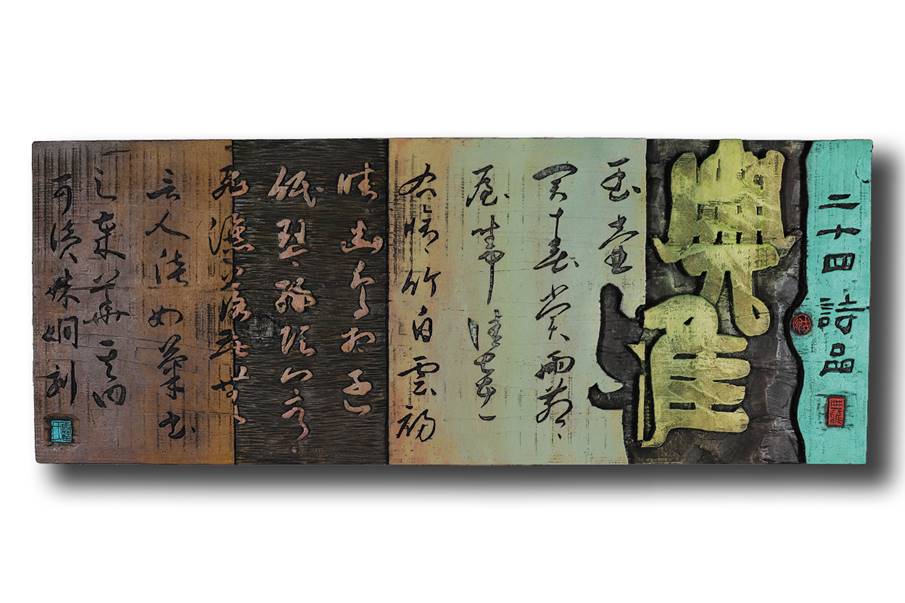 二十四詩品
典雅
玉壺
買春賞雨茅
屋坐中佳士左
右脩竹白雲初
晴幽鳥相逐
眠琴綠陰上有
飛瀑落花無
言人淡如菊書
之歲華其曰
可讀姝嫺刻